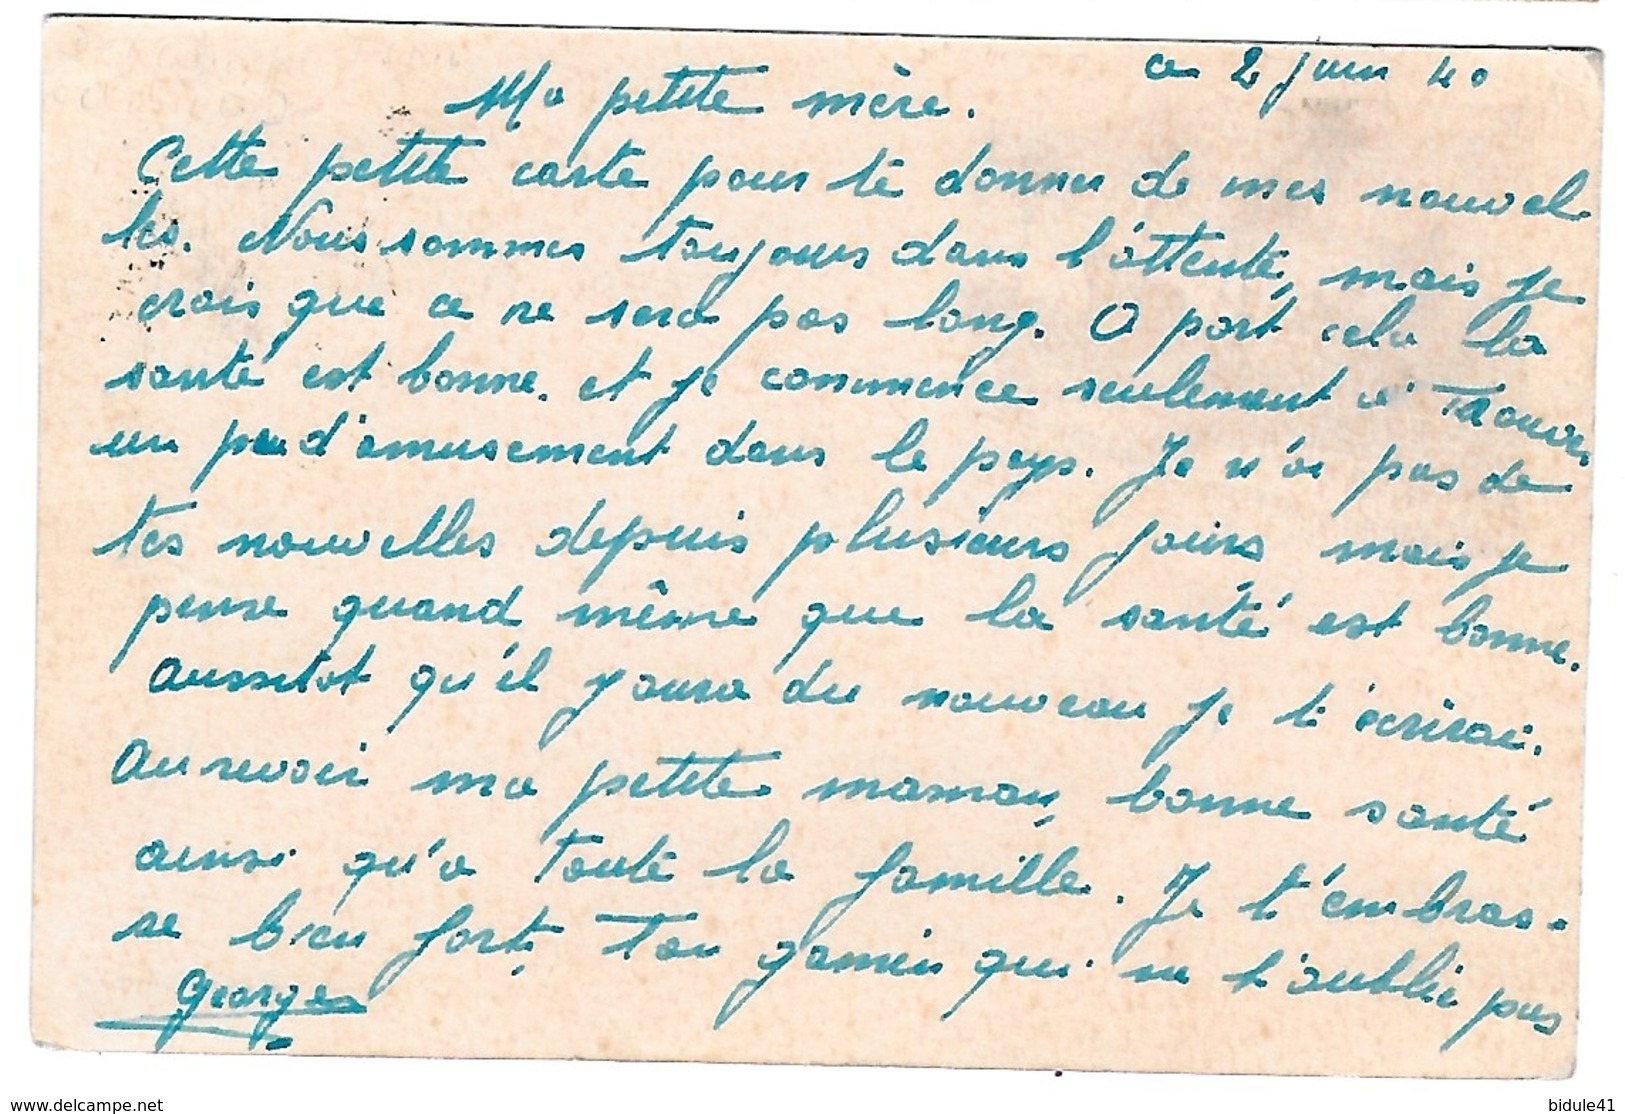 ce 2 juin 40
Ma petite mère.
Cette petite carte pour te donner de mes nouvel
les. Nous sommes toujours dans l'attente, mais je
crois que ce ne sera pas long. A part cela la
santé est bonne. et je commence seulement à trouver
un peu d'amusement dans le pays. Je n'ai pas de
tes nouvelles depuis plusieurs jours mais je
pense quand même que la santé est bonne.
aussitot qu'il y aura du nouveau je t'écrirai.
Au revoir ma petite maman, bonne santé
ainsi qu'a toute la famille. Je t'embras-
se bien fort, Ton gamin qui ne t'oublie pas
Georges
www.delcampe.net
bidule41